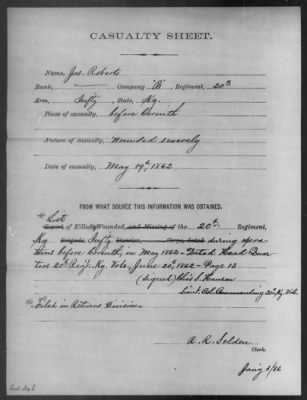 CASUALTY SHEET.
Name, Jas. Roberts
Rank, Company "B", Regiment, 20th
Arm, Infty, State, Ky.
Place of casualty, before Corinth
Nature of casualty, Wounded severely
Date of casualty, May 19th, 1862
FROM WHAT SOURCE THIS INFORMATION WAS OBTAINED.
* List
Report of Killed, Wounded, and Missing of the 20th Regiment,
Ky Brigade Infty Division Corps, dated during opera-
tions before Corinth, in May 1862 - Dated Head Quar-
ters 20th Regt. Ky. Vols, June 20th, 1862 - Page 13
(signed) Chas S. Hanson
Lieut. Col. Commanding 20th Ky. Vols.
* Filed in Returns Division.
A. R. Selden
Clerk.